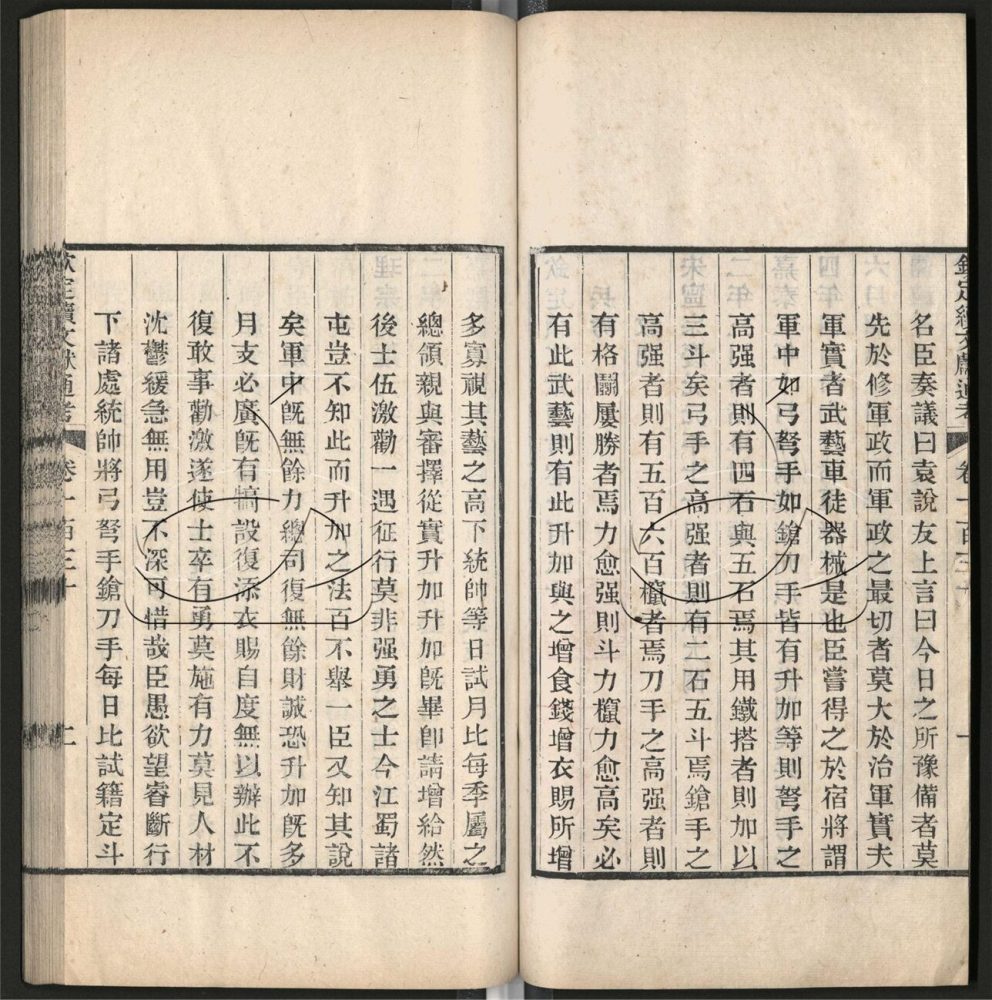 欽定續文獻通考 卷一百三十 一
名臣奏議曰袁說友上言曰今日之所豫備者莫
先於修軍政而軍政之最切者莫大於治軍實夫
軍實者武藝車徒器械是也臣嘗得之於宿將謂
軍中如弓弩手如鎗刀手皆有升加等則弩手之
高强者則有四石與五石焉其用鐵搭者則加以
三斗矣弓手之高强者則有二石五斗焉鎗手之
高强者則有五百六百攛者焉刀手之高强者則
有格鬭屢勝者焉力愈强則斗力攛力愈高矣必
有此武藝則有此升加與之增食錢增衣賜所增
多寡視其藝之高下統帥等日試月比每季屬之
總領親與審擇從實升加升加旣畢卽請增給然
後士伍激勸一遇征行莫非强勇之士今江蜀諸
屯豈不知此而升加之法百不舉一臣又知其說
矣軍中旣無餘力總司復無餘財誠恐升加旣多
月支必廣旣有犒設復添衣賜自度無以辦此不
復敢事勸激遂使士卒有勇莫施有力莫見人材
沈鬱緩急無用豈不深可惜哉臣愚欲望睿斷行
下諸處統帥將弓弩手鎗刀手每日比試籍定斗
欽定續文獻通考 卷一百三十 二